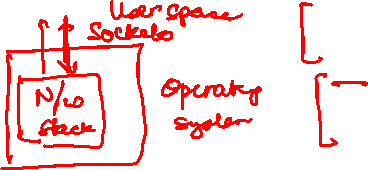 User space
Sockets
N/w
Stack
Operating
system